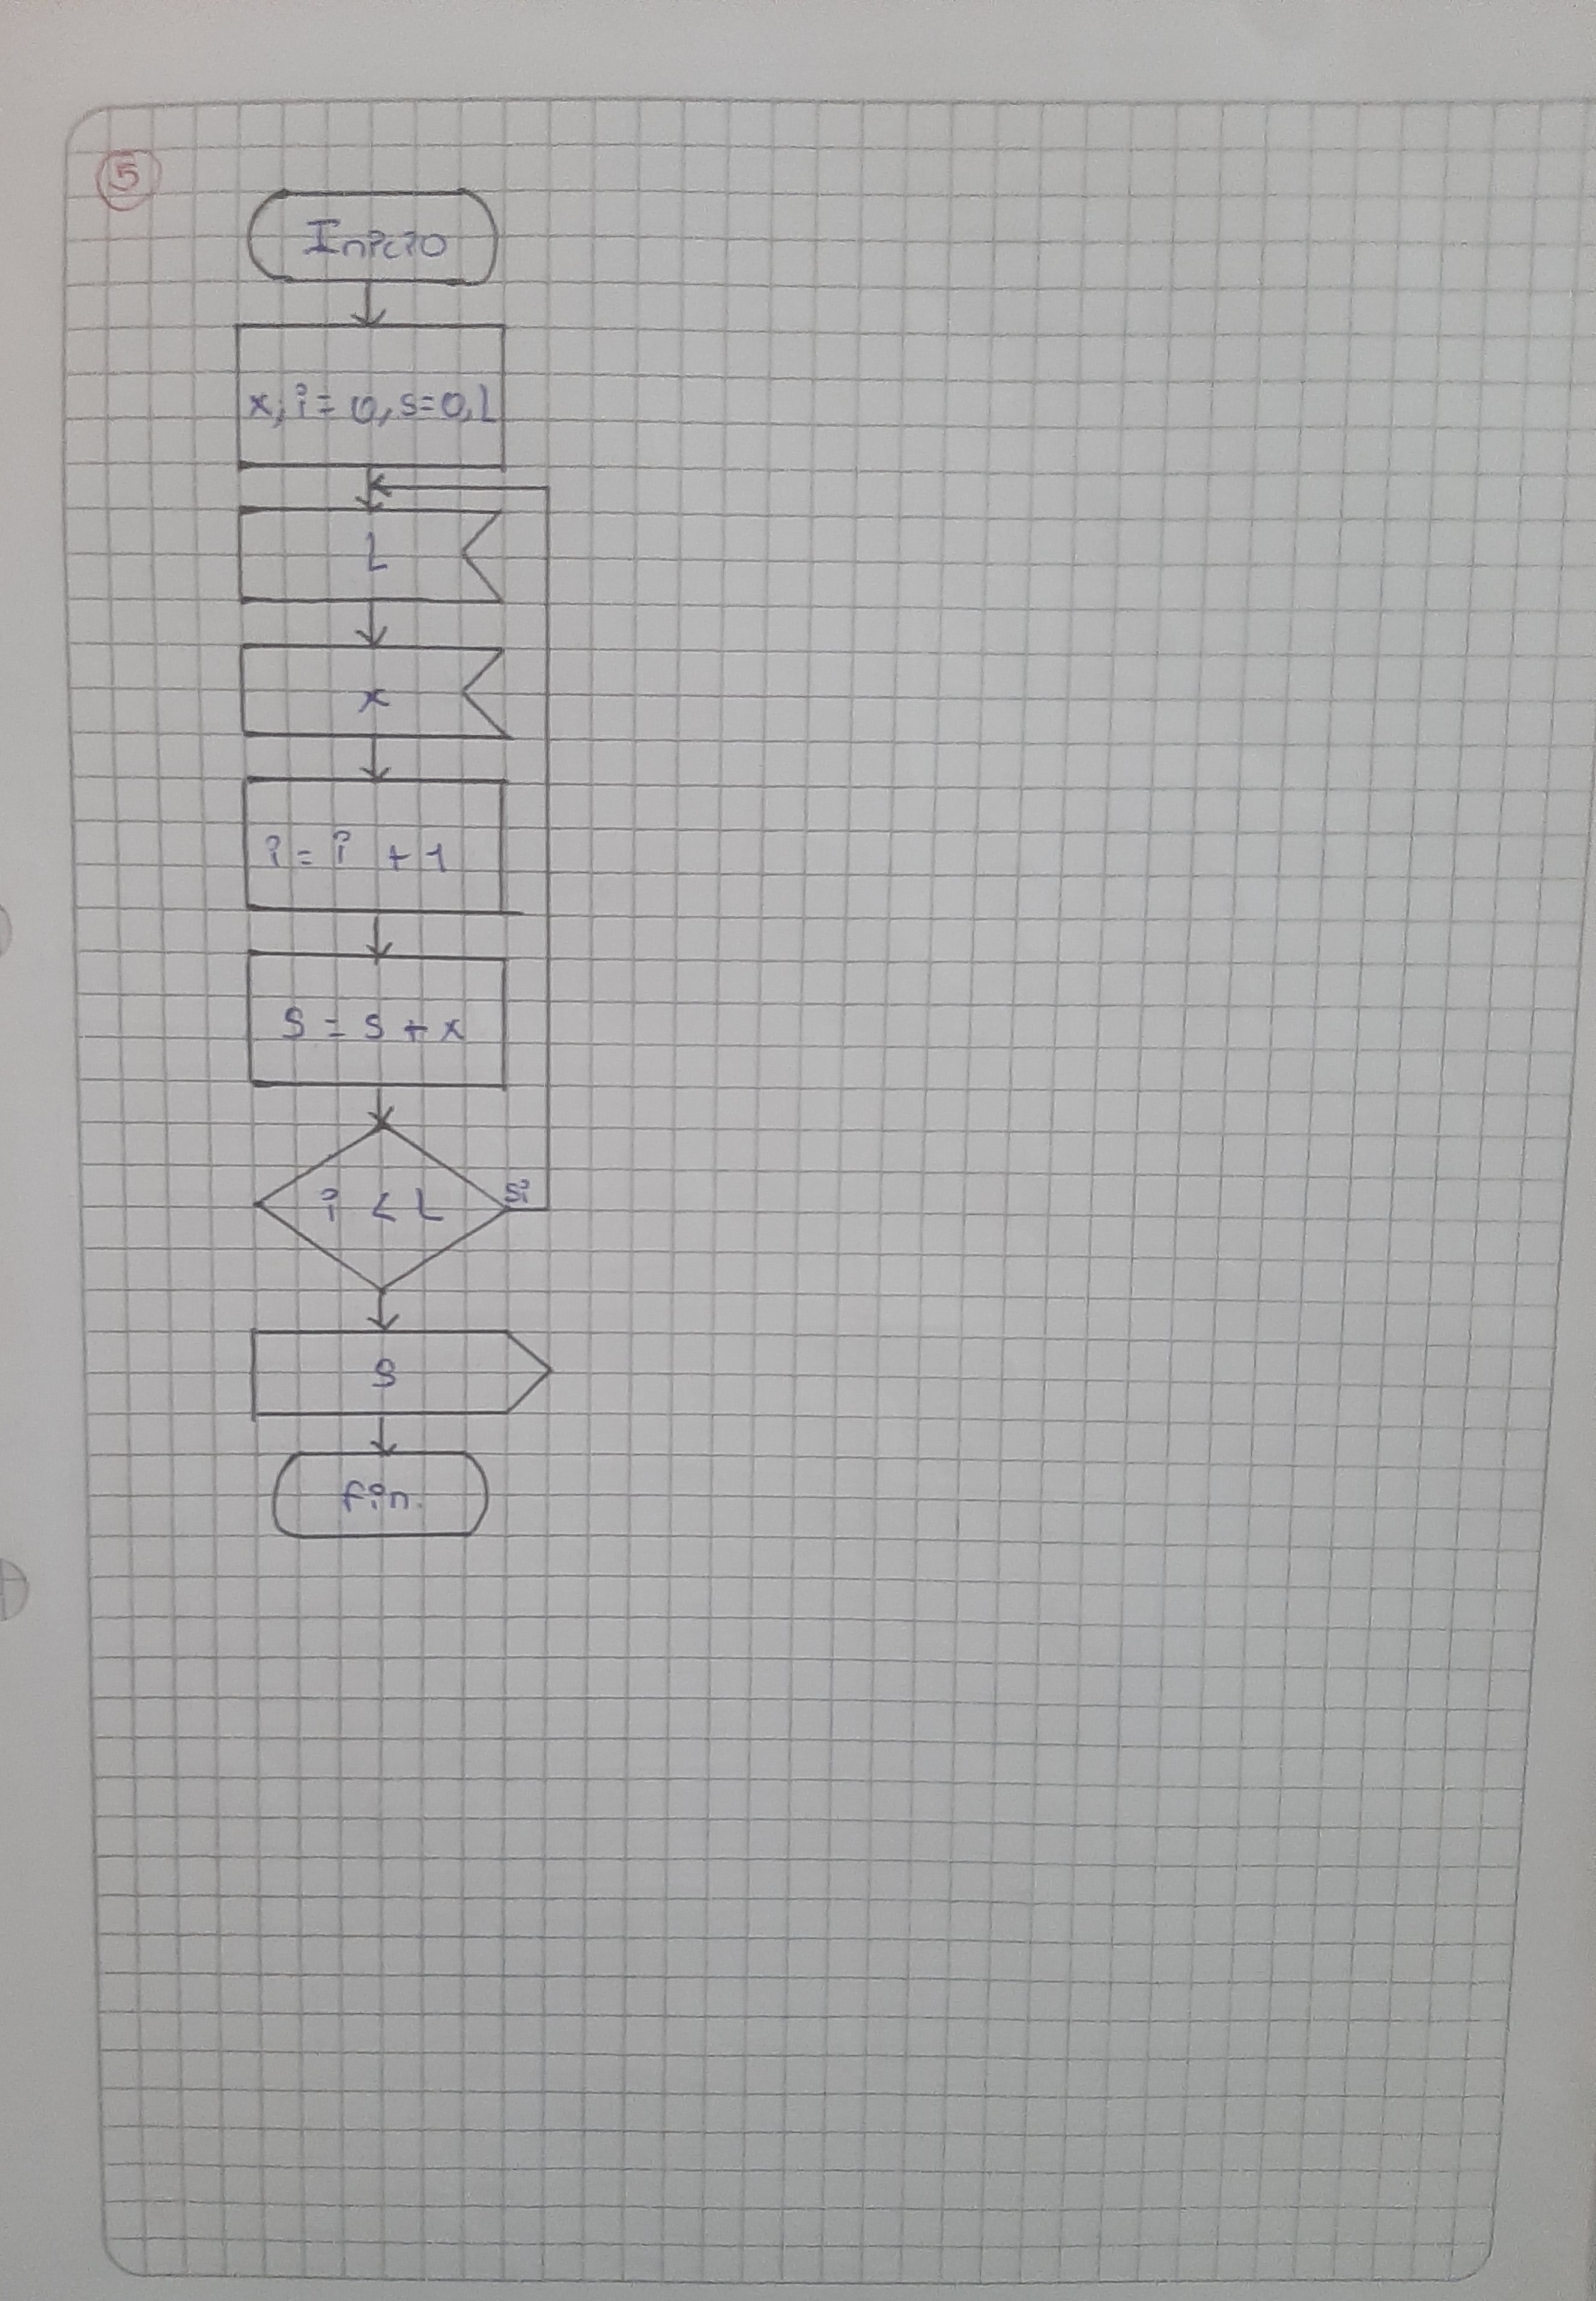 5
Inicio
x, i = 0, s=0, L
L
x
i = i + 1
S = S + x
i < L
Si
S
fin.